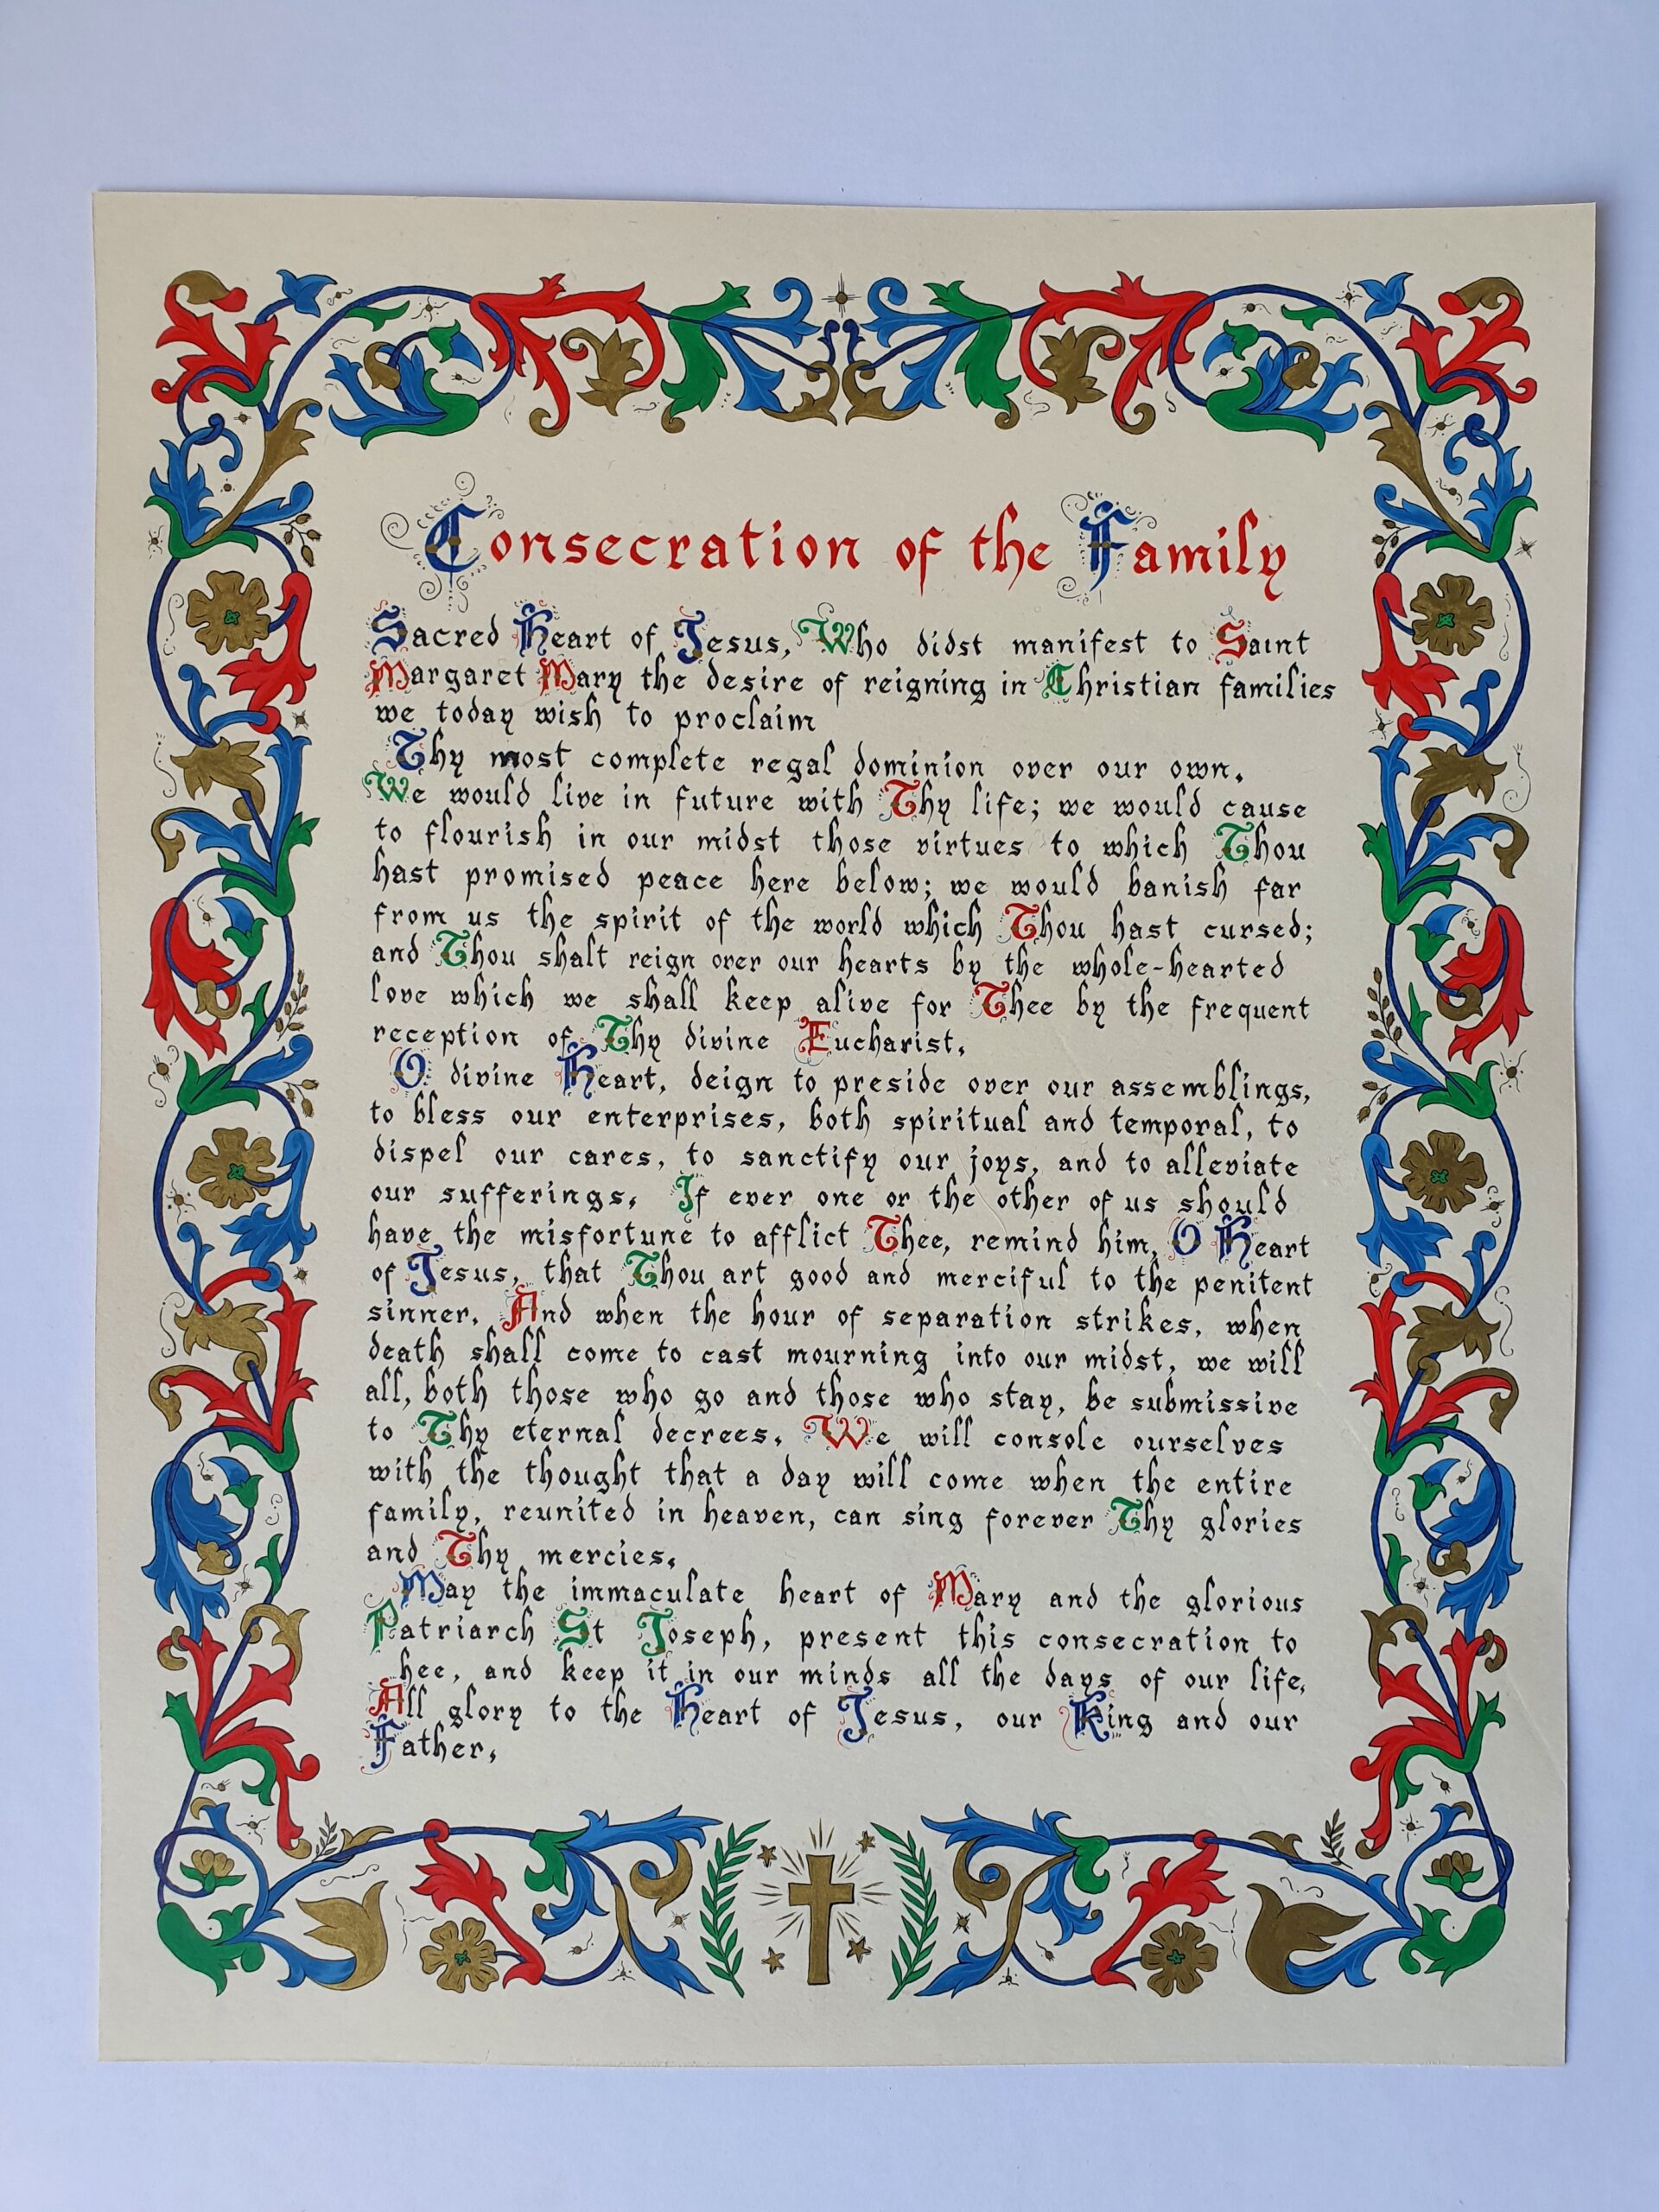 Consecration of the Family
Sacred Heart of Jesus, Who didst manifest to Saint
Margaret Mary the desire of reigning in Christian families
we today wish to proclaim
Thy most complete regal dominion over our own.
We would live in future with Thy life; we would cause
to flourish in our midst those virtues to which Thou
hast promised peace here below; we would banish far
from us the spirit of the world which Thou hast cursed;
and Thou shalt reign over our hearts by the whole-hearted
love which we shall keep alive for Thee by the frequent
reception of Thy divine Eucharist.
O divine Heart, deign to preside over our assemblings,
to bless our enterprises, both spiritual and temporal, to
dispel our cares, to sanctify our joys, and to alleviate
our sufferings. If ever one or the other of us should
have the misfortune to afflict Thee, remind him, O Heart
of Jesus, that Thou art good and merciful to the penitent
sinner. And when the hour of separation strikes, when
death shall come to cast mourning into our midst, we will
all, both those who go and those who stay, be submissive
to Thy eternal decrees. We will console ourselves
with the thought that a day will come when the entire
family, reunited in heaven, can sing forever Thy glories
and Thy mercies.
May the immaculate heart of Mary and the glorious
Patriarch St Joseph, present this consecration to
hee, and keep it in our minds all the days of our life.
All glory to the Heart of Jesus, our King and our
Father.